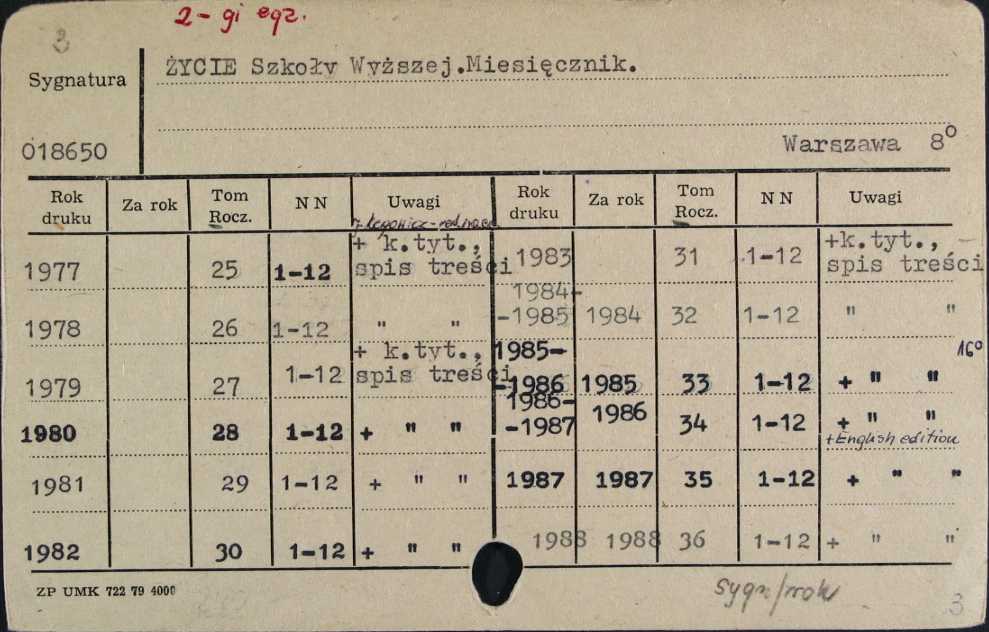 2-gi egz.
3
Sygnatura
ŻYCIE Szkoły Wyższej.Miesięcznik.
018650
Warszawa 8º
Rok druku Za rok Tom Rocz. N N Uwagi Rok druku Za rok Tom Rocz. N N Uwagi
1977 25 1-12 + k.tyt., spis treści 1983 31 1-12 +k.tyt., spis treści
1978 26 1-12 " " 1984--1985 1984 32 1-12 " "
1979 27 1-12 + k.tyt., spis treści 1985--1986 1985 33 1-12 + " " 16º
1980 28 1-12 + " " 1986--1987 1986 34 1-12 + " "
+English edition
1981 29 1-12 + " " 1987 1987 35 1-12 + " "
1982 30 1-12 + " " 1988 1988 36 1-12 + " "
ZP UMK 722 79 4000
sygn/rok
3